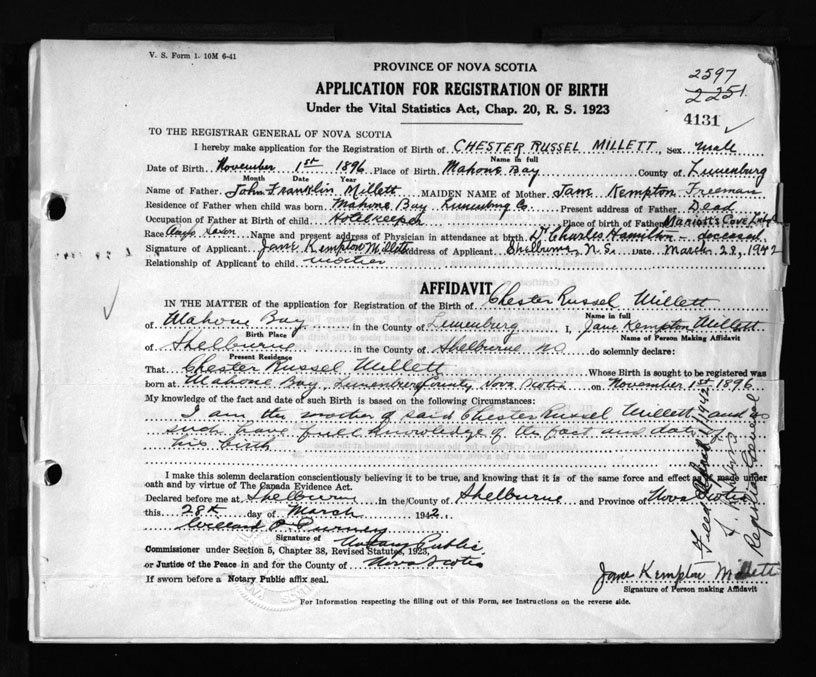 V. S. Form 1. 10M 6-41
PROVINCE OF NOVA SCOTIA
2597
2251
APPLICATION FOR REGISTRATION OF BIRTH
Under the Vital Statistics Act, Chap. 20, R. S. 1923
4131
TO THE REGISTRAR GENERAL OF NOVA SCOTIA
I hereby make application for the Registration of Birth of CHESTER RUSSEL MILLETT, Sex male
Name in full
Date of Birth November 1st 1896 Place of Birth Mahone Bay County of Lunenburg
Month Date Year
Name of Father John Franklin Millett MAIDEN NAME of Mother Jane Kempton Freeman
Residence of Father when child was born Mahone Bay Lunenburg Co. Present address of Father Dead
Occupation of Father at Birth of child Hotelkeeper Place of birth of Father Mariott's Cove
Race Anglo Saxon Name and present address of Physician in attendance at birth Dr Charles Hamilton - deceased
Signature of Applicant Jane Kempton Millett Address of Applicant Shelburne N.S. Date March 28, 1942
Relationship of Applicant to child mother
AFFIDAVIT
IN THE MATTER of the application for Registration of the Birth of Chester Russel Millett
Name in full
of Mahone Bay in the County of Lunenburg I, Jane Kempton Millett
Birth Place Name of Person Making Affidavit
of Shelburne in the County of Shelburne NS do solemnly declare:
Present Residence
That Chester Russel Millett Whose Birth is sought to be registered was
born at Mahone Bay, Lunenburg County, Nova Scotia on November 1st 1896
My knowledge of the fact and date of such Birth is based on the following Circumstances:
I am the mother of said Chester Russel Millett and as
such have full knowledge of the fact and date of
his birth
I make this solemn declaration conscientiously believing it to be true, and knowing that it is of the same force and effect as made under
oath and by virtue of The Canada Evidence Act.
Declared before me at Shelburne in the County of Shelburne and Province of Nova Scotia
this 28th day of March 1942.
Willard P. Purney
Signature of
Notary Public
Commissioner under Section 5, Chapter 38, Revised Statutes, 1923,
or Justice of the Peace in and for the County of Nova Scotia
If sworn before a Notary Public affix seal.
Jane Kempton Millett
Signature of Person making Affidavit
For Information respecting the filling out of this Form, see Instructions on the reverse side.
Filed 1942
Registrar General